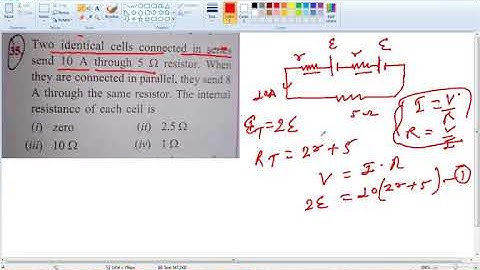 35. Two identical cells connected in series
send 10 A through 5 Ω resistor. When
they are connected in parallel, they send 8
A through the same resistor. The internal
resistance of each cell is
(i) zero (ii) 2.5 Ω
(iii) 10 Ω (iv) 1 Ω
r ε r ε
10A
5Ω
I = V/R
R = V/I
E_T = 2ε
R_T = 2r + 5
V = I · R
2ε = 10(2r+5) — ①